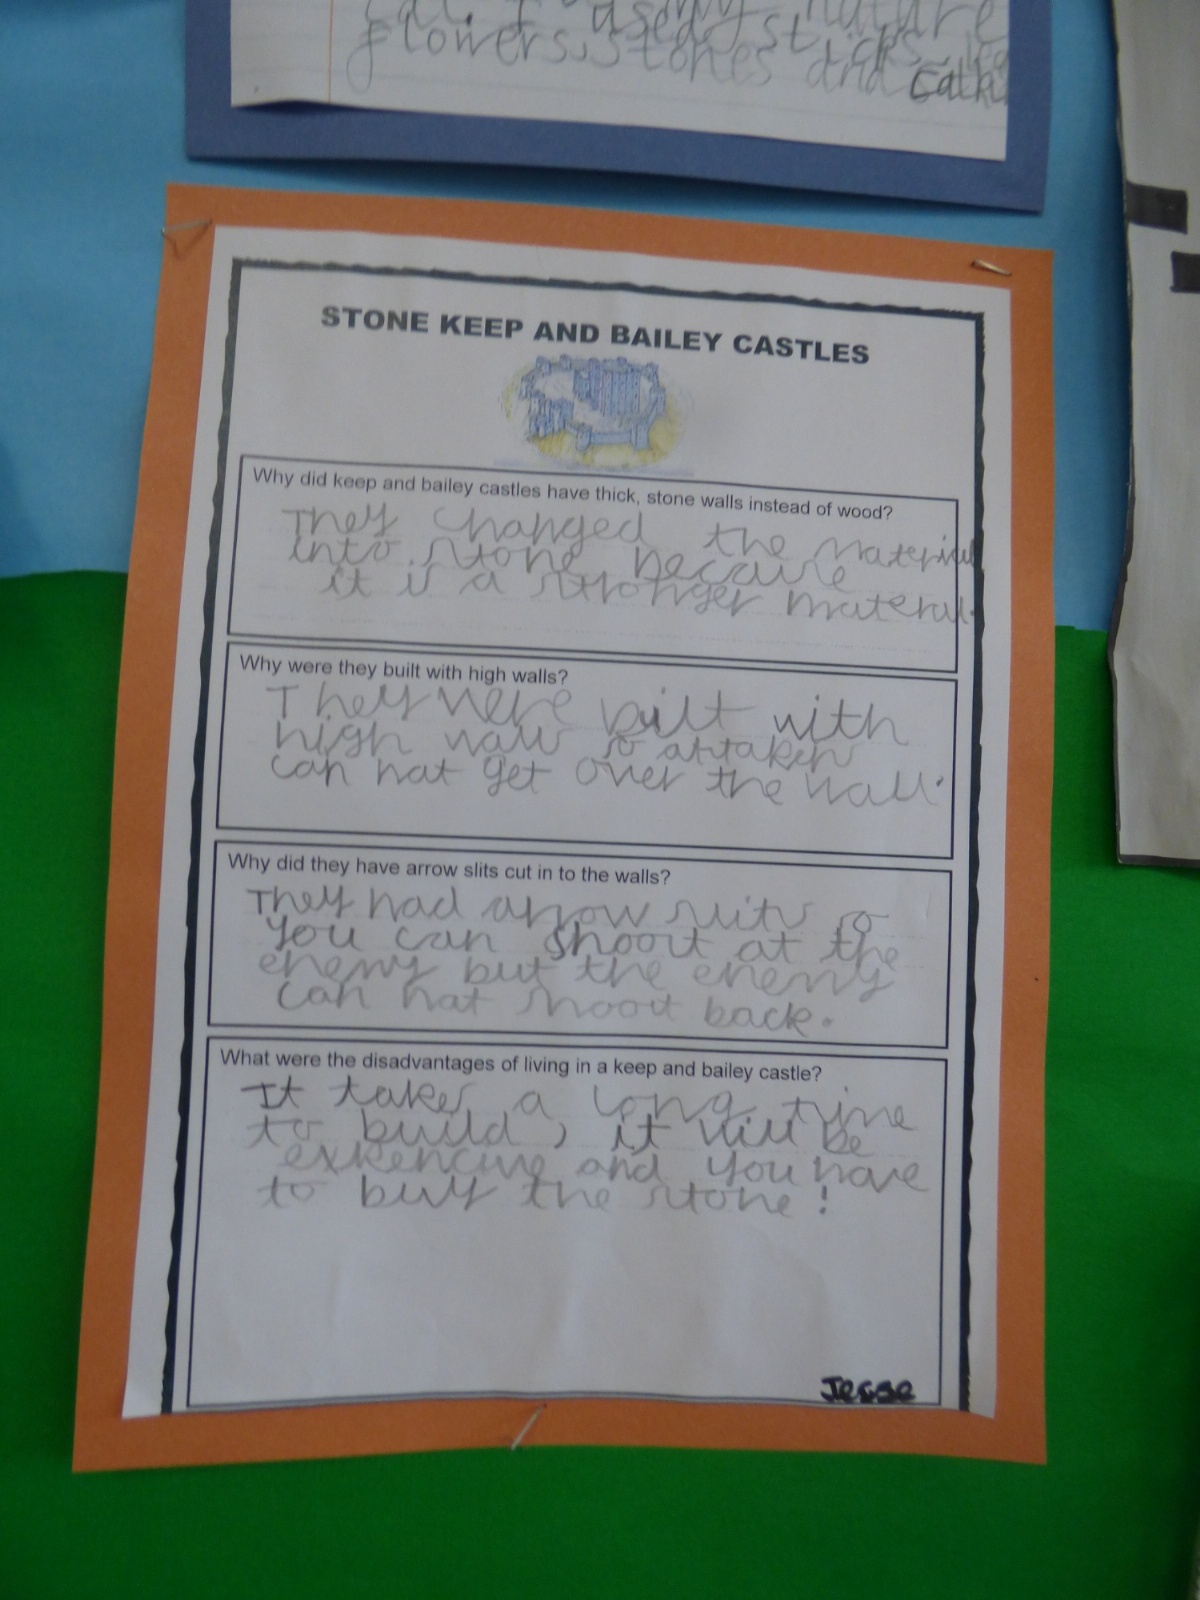 flowers, stones and catki
STONE KEEP AND BAILEY CASTLES
Why did keep and bailey castles have thick, stone walls instead of wood?
They changed the material
into stone because
it is a stronger material.
Why were they built with high walls?
They were bilt with
high walls so attakers
can not get over the wall.
Why did they have arrow slits cut in to the walls?
They had arrow slits so
you can shoort at the
enemy but the enemy
can not shoort back.
What were the disadvantages of living in a keep and bailey castle?
It takes a long time
to build, it will be
exkencive and you have
to buy the stone!
Jesse